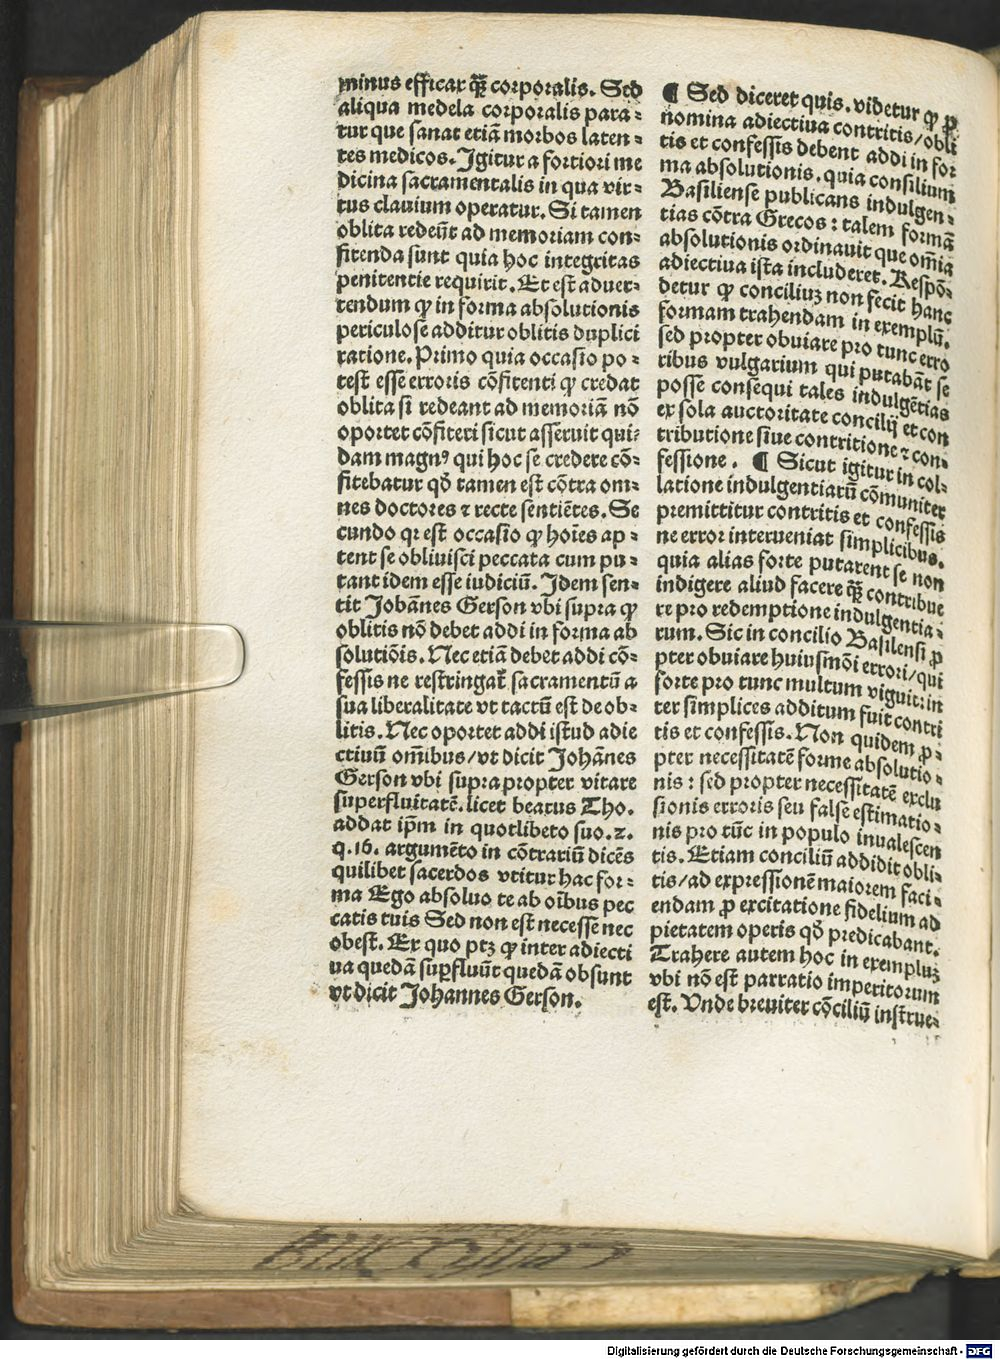 minus efficax qȝ̄ corporalis. Sed
aliqua medela corporalis para⸗
tur que sanat etiā morbos laten⸗
tes medicos. Igitur a fortiori me
dicina sacramentalis in qua vir⸗
tus clauium operatur. Si tamen
oblita redeūt ad memoriam con⸗
fitenda sunt quia hoc integritas
penitentie requirit. Et est aduer⸗
tendum ꝙ in forma absolutionis
periculose additur oblitis duplici
ratione. Primo quia occasio po⸗
test esse erroris cōfitenti ꝙ credat
oblita si redeant ad memoriā nō
oportet cōfiteri sicut asseruit qui⸗
dam magnꝰ qui hoc se credere cō⸗
fitebatur qḋ tamen est cōtra om⸗
nes doctores ⁊ recte sentiētes. Se
cundo qr est occasio ꝙ hoīes ap⸗
tent se obliuisci peccata cum pu⸗
tant idem esse iudiciū. Idem sen⸗
tit Johānes Gerson vbi supra ꝙ
oblitis nō debet addi in forma ab
solutiōis. Nec etiā debet addi cō⸗
fessis ne restringat᷑ sacramentū a
sua liberalitate vt tactū est de ob⸗
litis. Nec oportet addi istud adie
ctiuū om̄ibus/vt dicit Johānes
Gerson vbi supra propter vitare
superfluitatē. licet beatus Tho.
addat ip̄m in quotlibeto suo .2.
q. 16. argumēto in cōtrariū dicēs
quilibet sacerdos vtitur hac for⸗
ma Ego absoluo te ab oībus pec
catis tuis Sed non est necesse nec
obest. Ex quo ptȝ ꝙ inter adiecti
ua quedā suꝑfluūt quedā obsunt
vt dicit Johannes Gerson.
¶ Sed diceret quis. videtur ꝙ ꝓ
nomina adiectiua contritis/obli
tis et confessis debent addi in for
ma absolutionis. quia consilium
Basiliense publicans indulgen⸗
tias cōtra Grecos: talem formā
absolutionis ordinauit que om̄ia
adiectiua ista includeret. Respō⸗
detur ꝙ conciliuȝ non fecit hanc
formam trahendam in exemplū.
sed propter obuiare pro tunc erro
ribus vulgarium qui putabāt se
posse consequi tales indulgētias
ex sola auctoritate concilij et con
tributione siue contritione ⁊ con⸗
fessione. ¶ Sicut igitur in col⸗
latione indulgentiarū cōmuniter
premittitur contritis et confessis
ne error interueniat simplicibus.
quia alias forte putarent se non
indigere aliud facere qȝ̄ contribue
re pro redemptione indulgentia⸗
rum. Sic in concilio Basilensi ꝓ
pter obuiare huiusmōi errori/qui
forte pro tunc multum viguit: in
ter simplices additum fuit contri
tis et confessis. Non quidem ꝓ⸗
pter necessitatē forme absolutio⸗
nis: sed propter necessitatē exclu
sionis erroris seu false estimatio⸗
nis pro tūc in populo inualescen
tis. Etiam conciliū addidit obli⸗
tis/ad expressionē maiorem faci⸗
endam ꝓ excitatione fidelium ad
pietatem operis qḋ predicabant.
Trahere autem hoc in exempluȝ
vbi nō est par ratio imperitorum
est. Vnde breuiter cōciliū instrue⸗
Digitalisierung gefördert durch die Deutsche Forschungsgemeinschaft - DFG